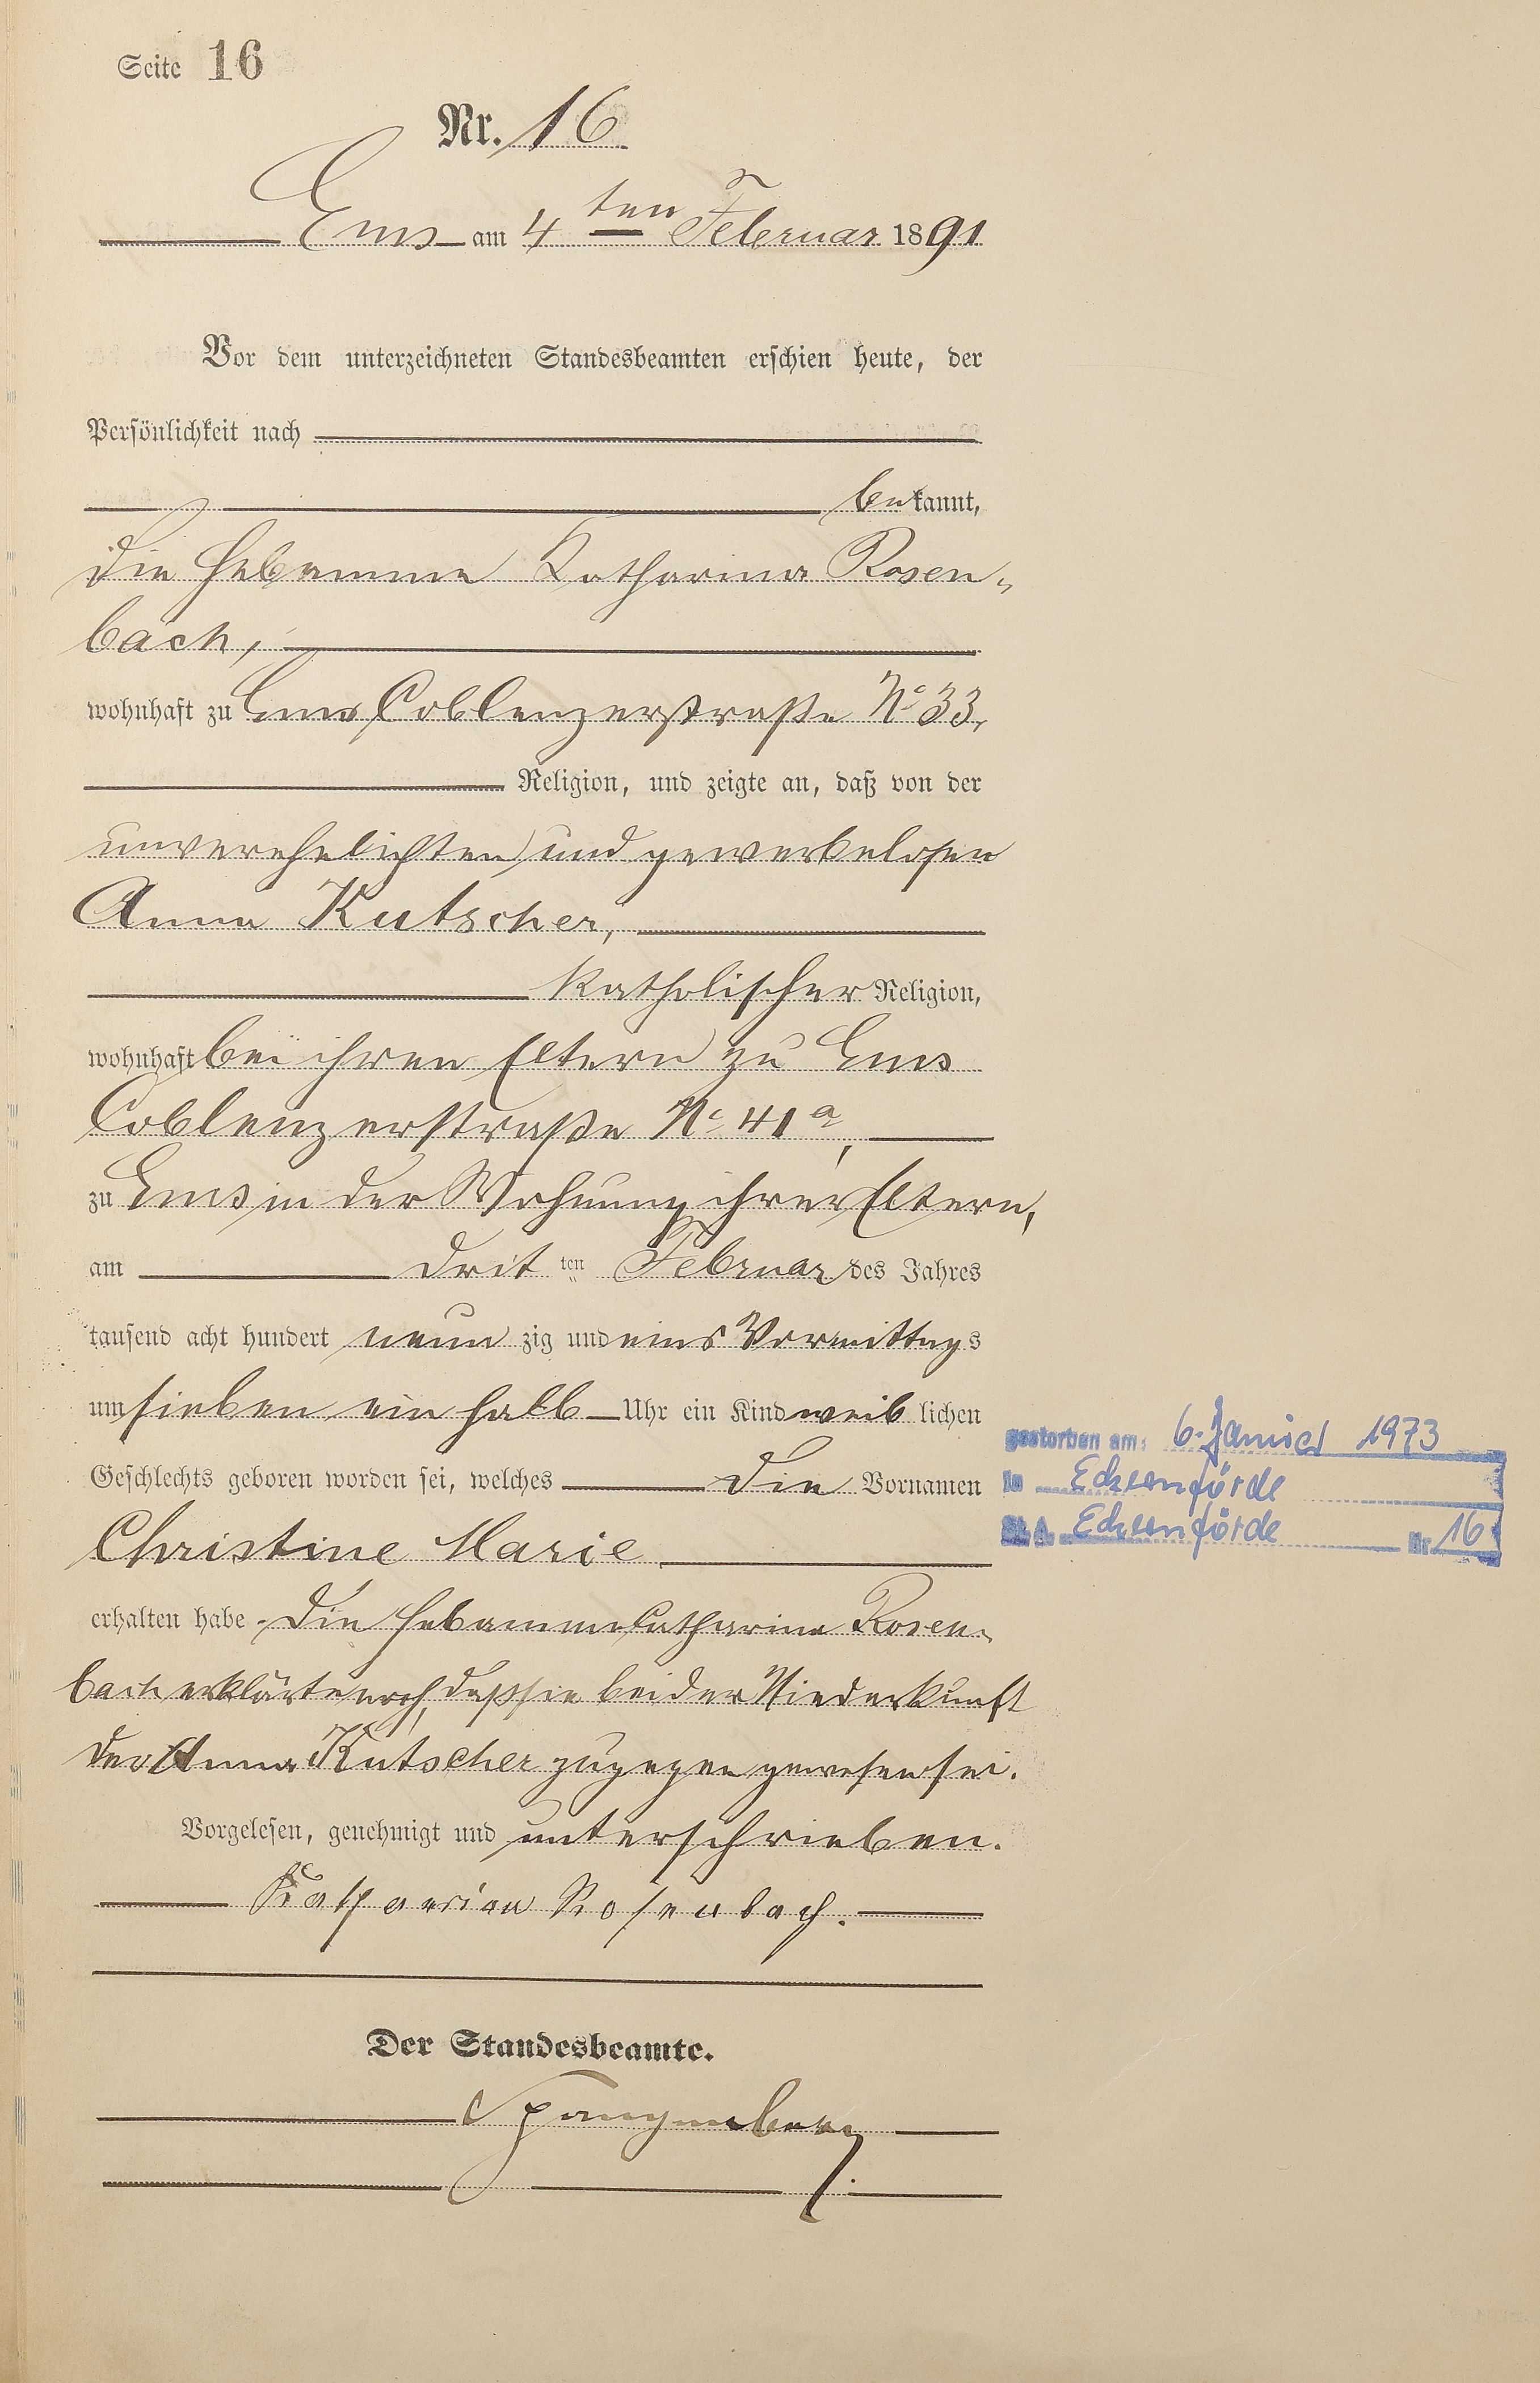 Seite 16
Nr. 16
Ems am 4ten Februar 1891
Vor dem unterzeichneten Standesbeamten erschien heute, der
Persönlichkeit nach
bekannt,
die Hebamme Katharina Rosen-
bach,
wohnhaft zu Ems Coblenzerstraße No 33,
Religion, und zeigte an, daß von der
unverehelichten und gewerbelosen
Anna Kutscher,
katholischer Religion,
wohnhaft bei ihren Eltern zu Ems
Coblenzerstraße No 41a,
zu Ems in der Wohnung ihrer Eltern,
am dritten Februar des Jahres
tausend acht hundert neunzig und eins Vormittags
um sieben ein halb Uhr ein Kind weiblichen
Geschlechts geboren worden sei, welches die Vornamen
Christine Marie
erhalten habe. Die Hebamme Catharina Rosen-
bach erklärte noch, daß sie bei der Niederkunft
der Anna Kutscher zugegen gewesen sei.
Vorgelesen, genehmigt und unterschrieben.
Katharina Rosenbach.
Der Standesbeamte.
Spangenberg
gestorben am: 6. Januar 1973
in Eckernförde
St. A. Eckernförde Nr. 16